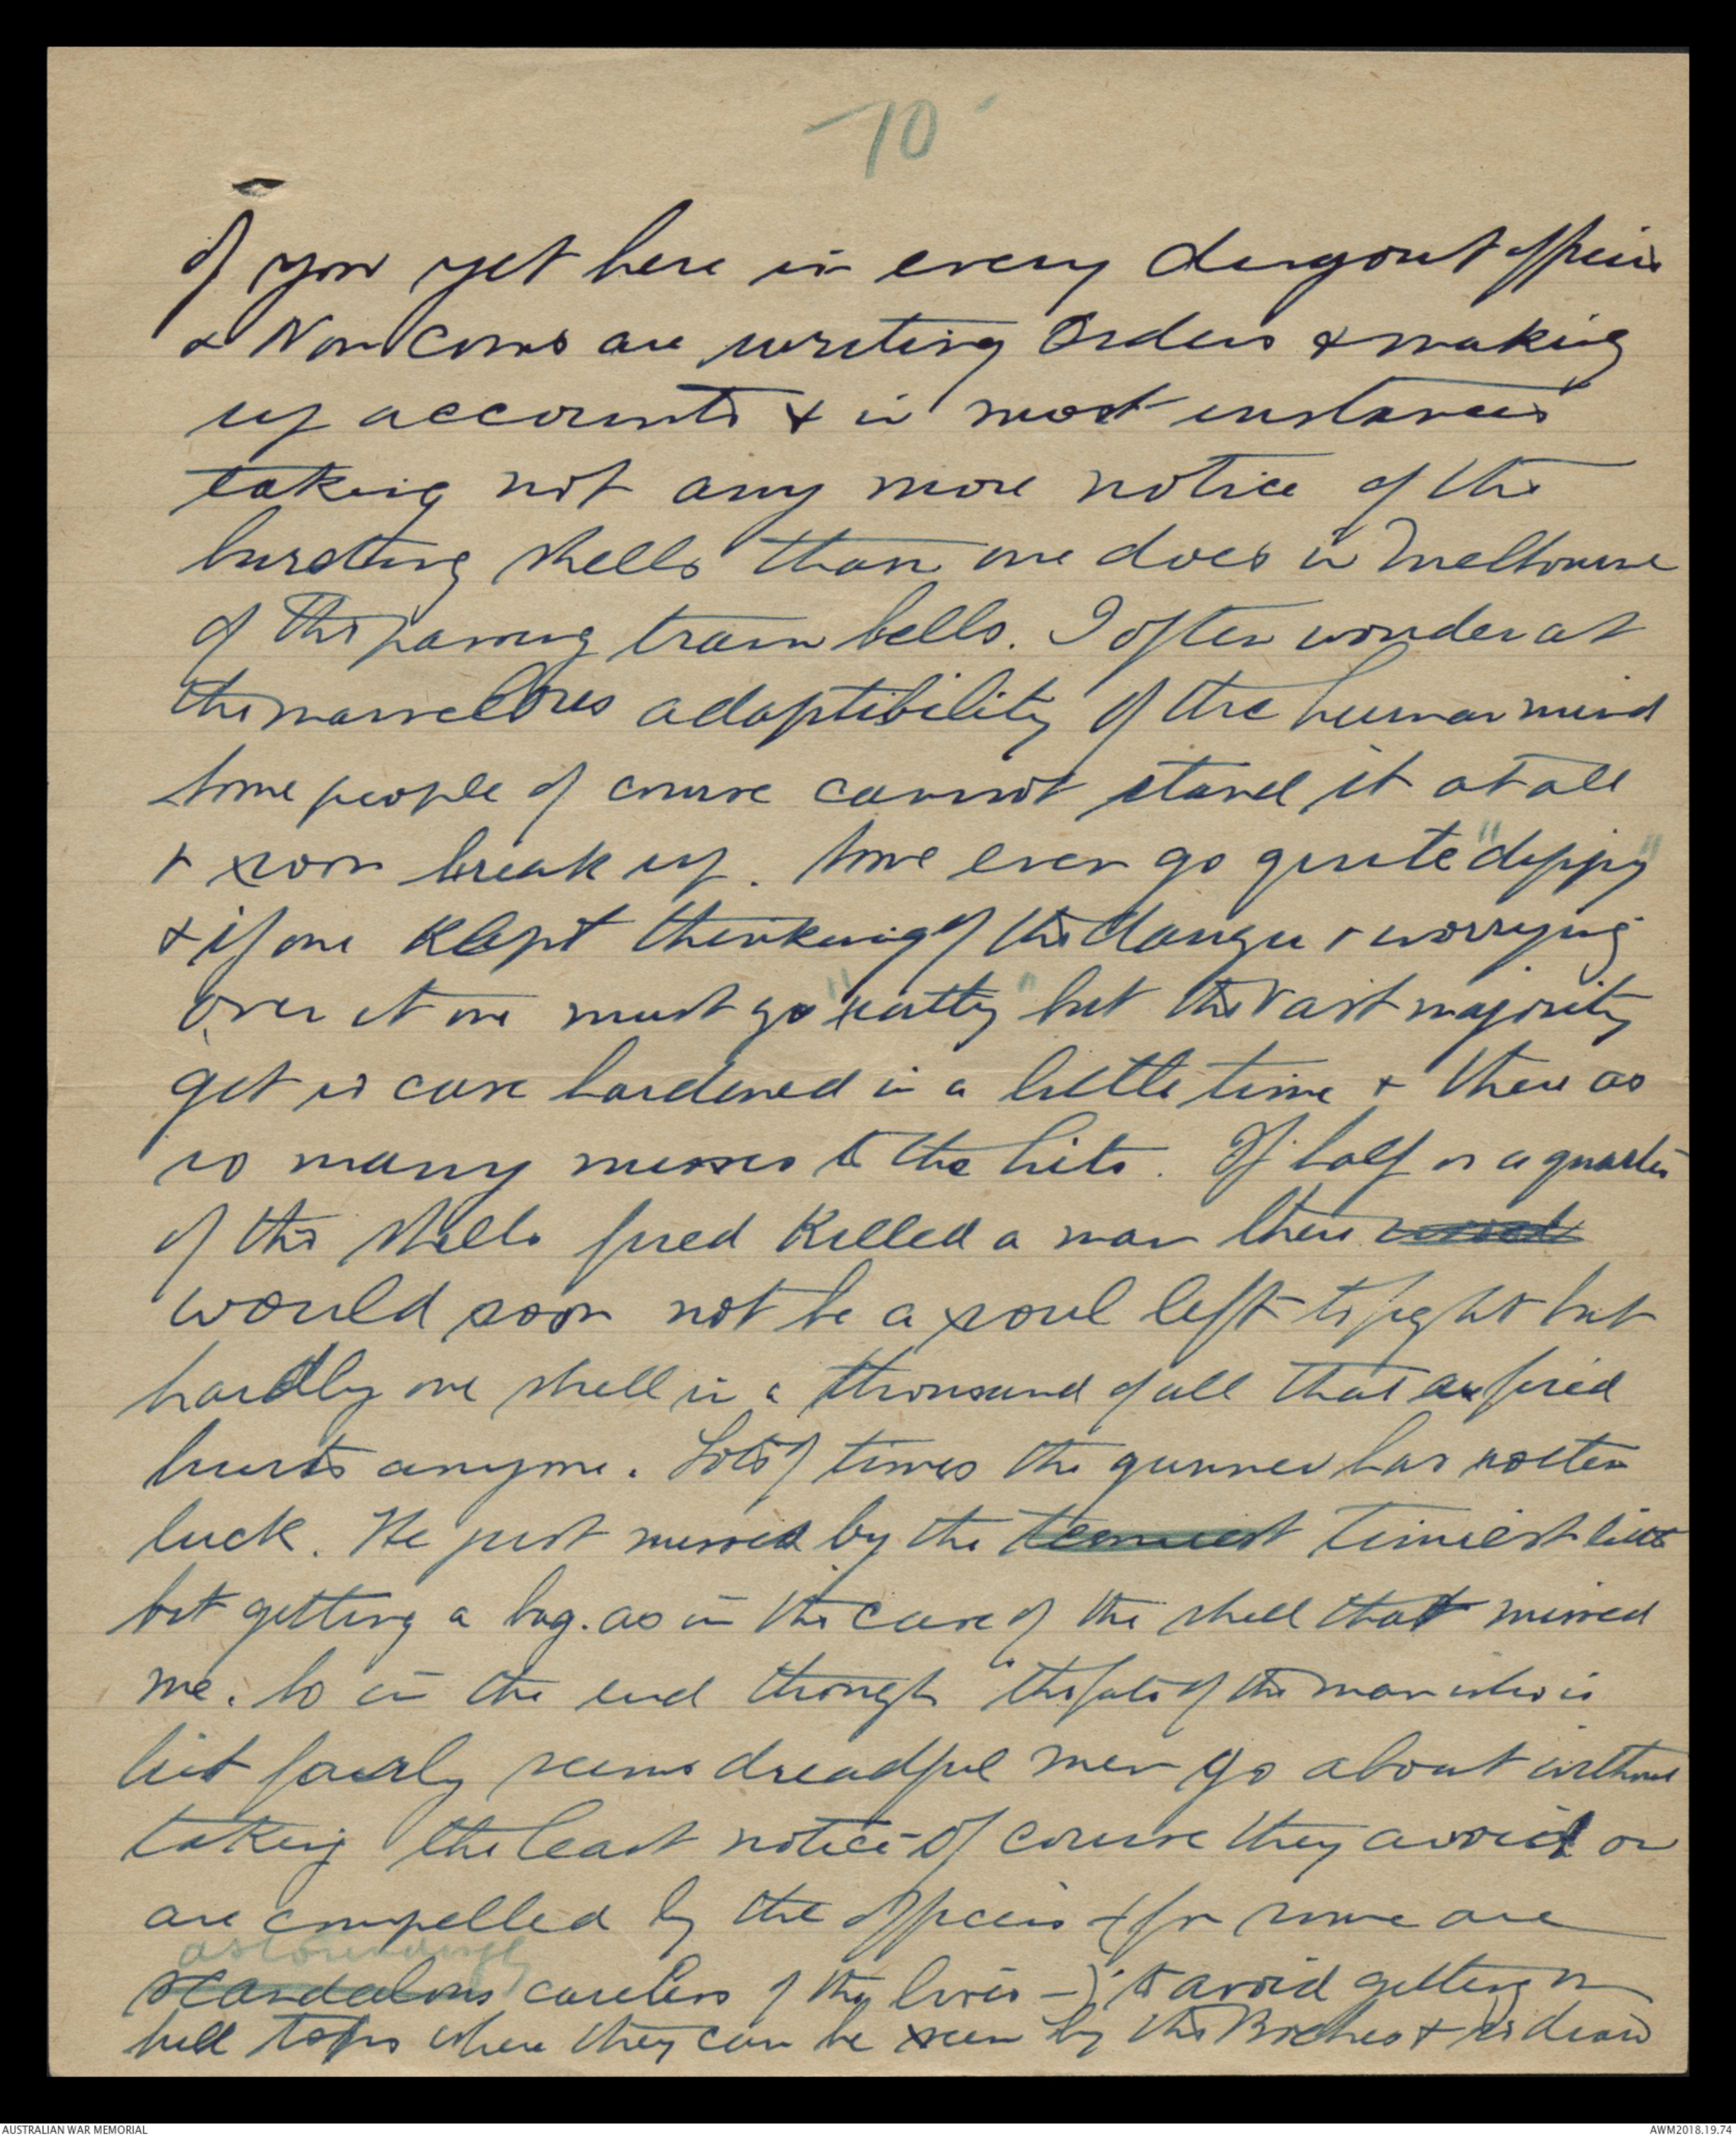 10
of you yet here in every dugout officers
& Non Coms are writing Orders & making
up accounts & in most instances
taking not any more notice of the
bursting shells than one does in Melbourne
of the passing tram bells. I often wonder at
the marvellous adaptibility of the human mind
Some people of course cannot stand it at all
& soon break up. Some even go quite "dippy"
& if one kept thinking of the danger & worrying
over it one must go "ratty" but the vast majority
get so case hardened in a little time & there as
so many misses to the hits. If half or a quarter
of the shells fired killed a man there
would soon not be a soul left to fight but
hardly one shell in a thousand of all that are fired
hurts anyone. Lots of times the gunner has rotten
luck. He just missed by the teeniest tiniest little
bit getting a bag. as in the case of the shell that missed
me. So in the end though "the fate of the man who is
hit fairly seems dreadful men go about without
taking the least notice - Of course they avoid or
are compelled by the officers - (for some are
astoundingly
scandalous careless of thy lives -) to avoid getting on
hill tops where they can be seen by the Boches & so draw
AUSTRALIAN WAR MEMORIAL
AWM2018.19.74